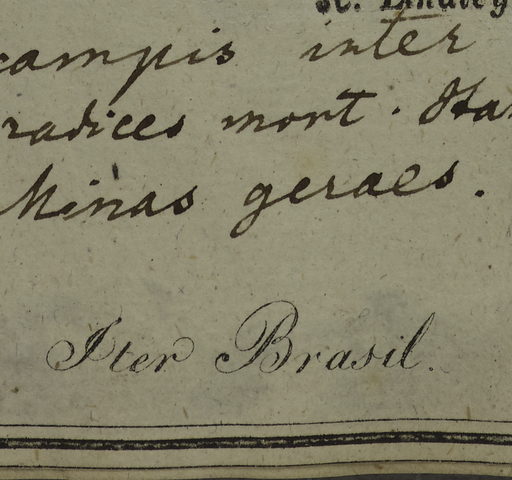 campis inter
radices mont.
Minas geraes.
Iter Brasil.